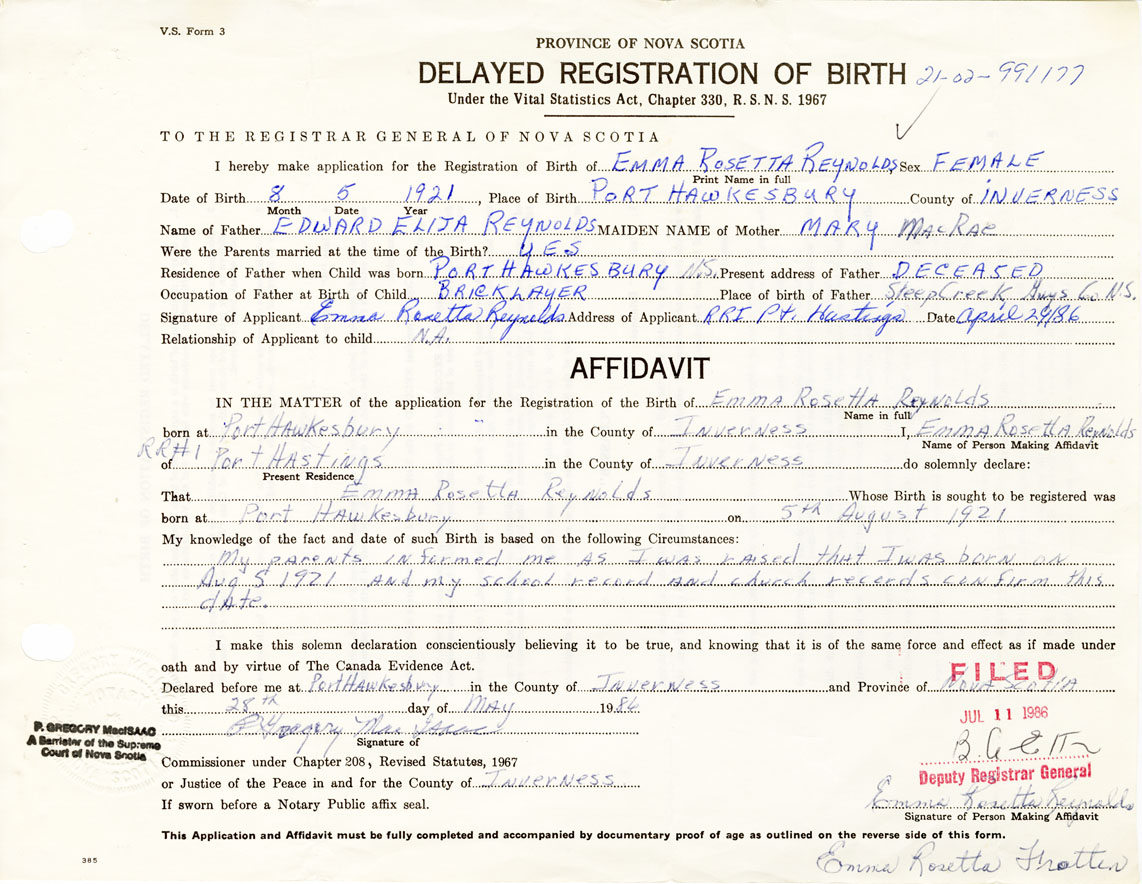 V.S. Form 3
PROVINCE OF NOVA SCOTIA
DELAYED REGISTRATION OF BIRTH 21-02-991177
Under the Vital Statistics Act, Chapter 330, R. S. N. S. 1967
TO THE REGISTRAR GENERAL OF NOVA SCOTIA
I hereby make application for the Registration of Birth of EMMA ROSETTA REYNOLDS Sex FEMALE
Print Name in full
Date of Birth 8 5 1921, Place of Birth PORT HAWKESBURY County of INVERNESS
Month Date Year
Name of Father EDWARD ELIJA REYNOLDS MAIDEN NAME of Mother MARY MACRAE
Were the Parents married at the time of the Birth? YES
Residence of Father when Child was born PORT HAWKESBURY N.S. Present address of Father DECEASED
Occupation of Father at Birth of Child BRICKLAYER Place of birth of Father SteepCreek Guys Co N.S.
Signature of Applicant Emma Rosetta Reynolds Address of Applicant RR1 Pt. Hastings Date April 29/86
Relationship of Applicant to child N.A.
AFFIDAVIT
IN THE MATTER of the application for the Registration of the Birth of EMMA ROSETTA REYNOLDS
Name in full
born at Port Hawkesbury in the County of Inverness I, EMMA ROSETTA Reynolds
Name of Person Making Affidavit
RR#1
of Port Hastings in the County of Inverness do solemnly declare:
Present Residence
That Emma Rosetta Reynolds Whose Birth is sought to be registered was
born at Port Hawkesbury on 5th August 1921
My knowledge of the fact and date of such Birth is based on the following Circumstances:
My parents informed me as I was raised that I was born on
Aug 5 1921 and my school record and church records confirm this
date.
I make this solemn declaration conscientiously believing it to be true, and knowing that it is of the same force and effect as if made under
oath and by virtue of The Canada Evidence Act.
FILED
Declared before me at Port Hawkesbury in the County of Inverness and Province of Nova Scotia
this 28th day of MAY 1986
JUL 11 1986
P. GREGORY MacISAAC
A Barrister of the Supreme
Court of Nova Scotia
P Gregory Mac Isaac
Signature of
Commissioner under Chapter 208, Revised Statutes, 1967
Deputy Registrar General
or Justice of the Peace in and for the County of Inverness
Emma Rosetta Reynolds
If sworn before a Notary Public affix seal.
Signature of Person Making Affidavit
This Application and Affidavit must be fully completed and accompanied by documentary proof of age as outlined on the reverse side of this form.
385
Emma Rosetta Trotten